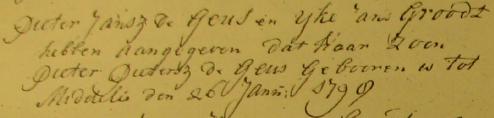 Pieter Jansz de Geus en Yke Jans Groodt
hebben aangegeven dat haar zoon
Pieter Pietersz de Geus Gebooren is tot
Middelis den 26 Janu: 179